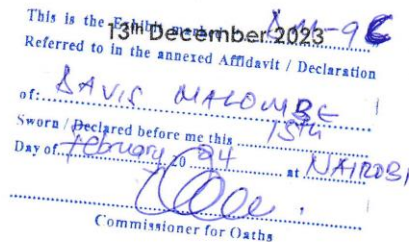 This is the Exhibit marked DM-9C
13th December 2023
Referred to in the annexed Affidavit / Declaration
of: DAVIS MALOMBE
Sworn / Declared before me this 15th
Day of February 20 24 at NAIROBI
Commissioner for Oaths